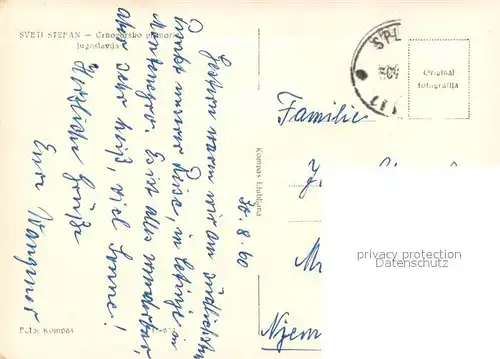 SVETI STEFAN — Crnogorsko primorje
Jugoslavija
Gestern waren wir am südlichsten
Punkt unserer Reise, in Cetinje in
Montenegro. Es ist alles wunderbar,
aber sehr heiß, viel Sonne!
Herzliche Grüße
Euer
30.8.60
Foto: Kompas
Kompas Ljubljana
SPL
Original
fotografija
Familie
Njem
privacy protection
veikkos.com